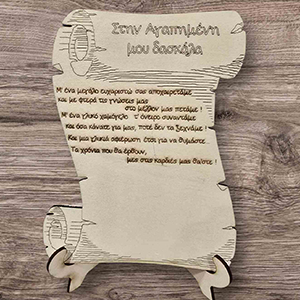 Στην Αγαπημένη
μου δασκάλα
Μ' ένα μεγάλο ευχαριστώ σας αποχαιρετάμε
Και με φτερά τις γνώσεις μας
στο μέλλον μας πετάμε !
Μ' ένα γλυκό χαμόγελο τ' όνειρο συναντάμε
Και όσα κάνατε για μας, ποτέ δεν τα ξεχνάμε !
Και μια γλυκιά αφιέρωση έτσι για να θυμάστε
Τα χρόνια που θα έρθουν,
μες στις καρδιές μας θα'στε !